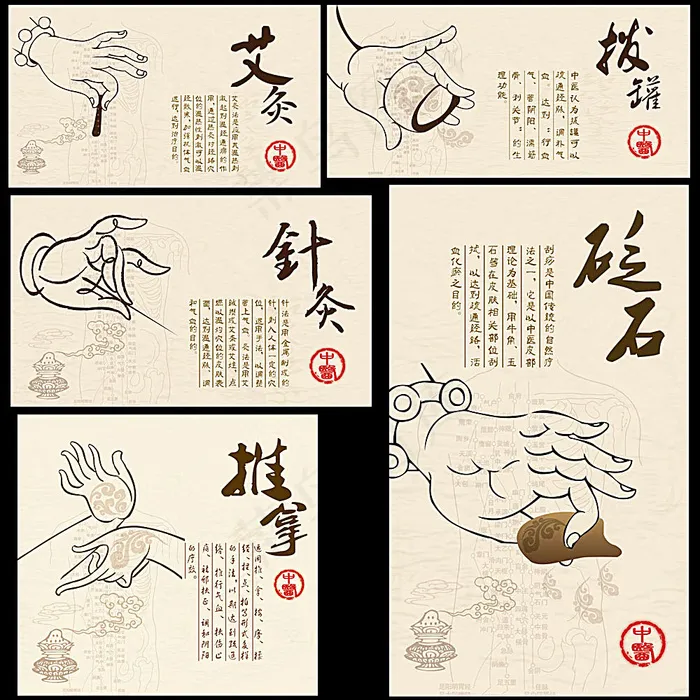 艾灸
艾灸法是应用其温热刺
激起到温经通痹的作
用。通过热灸对经络穴
位的温热性刺激可以温
经散寒，加强机体气血
运行，达到治疗目的。
中醫
拨罐
中医认为拔罐可以
疏通经脉，调补气
血。达到：行血
气、营阴阳、濡筋
骨、利关节：的生
理功能
中醫
針灸
针法是用金属制成的
针，刺入人体一定的穴
位，运用手法，以调整
气血。灸法是用艾
艾炷，点
燃以温灼穴位的皮肤表
面，达到温通经脉、调
和气血的目的。
中醫
砭石
刮痧是中国传统的自然疗
法之一，它是以中医皮部
理论为基础，用牛角、玉
石等在皮肤相关部位刮
拭，以达到疏通经络，活
血化瘀之目的。
中醫
推拿
运用推、拿、按、摩、揉
捏、点、拍等形式多样
的手法，以期达到疏通
络、推行气血、扶伤止
痛、祛邪扶正、调和阴阳
的疗效。
中醫